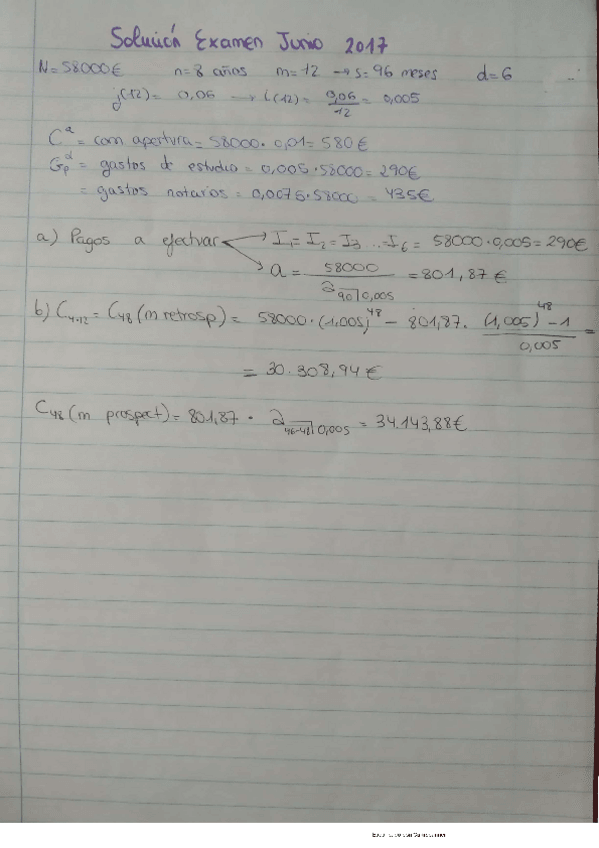 Solución Examen Junio 2017
N=58000€ n=8 años m=12 → s=96 meses d=6
j(12)= 0,06 → i(12)= 0,06/12 = 0,005
Cᵃ = com apertura = 58000·0,01 = 580€
Gpᵈ = gastos de estudio = 0,005·58000 = 290€
= gastos notarios = 0,0075·58000 = 435€
a) Pagos a efectuar → I₁ = I₂ = I₃ ... = I₆ = 58000·0,005 = 290€
a = 58000 / a90⌉0,005 = 801,87€
b) C₄.₁₂ = C₄₈ (m retrosp) = 58000·(1.005)⁴⁸ - 801,87· (1,005)⁴⁸-1 / 0,005 =
= 30.308,94€
C₄₈ (m prospect) = 801,87 · a96-48⌉0,005 = 34.143,88€